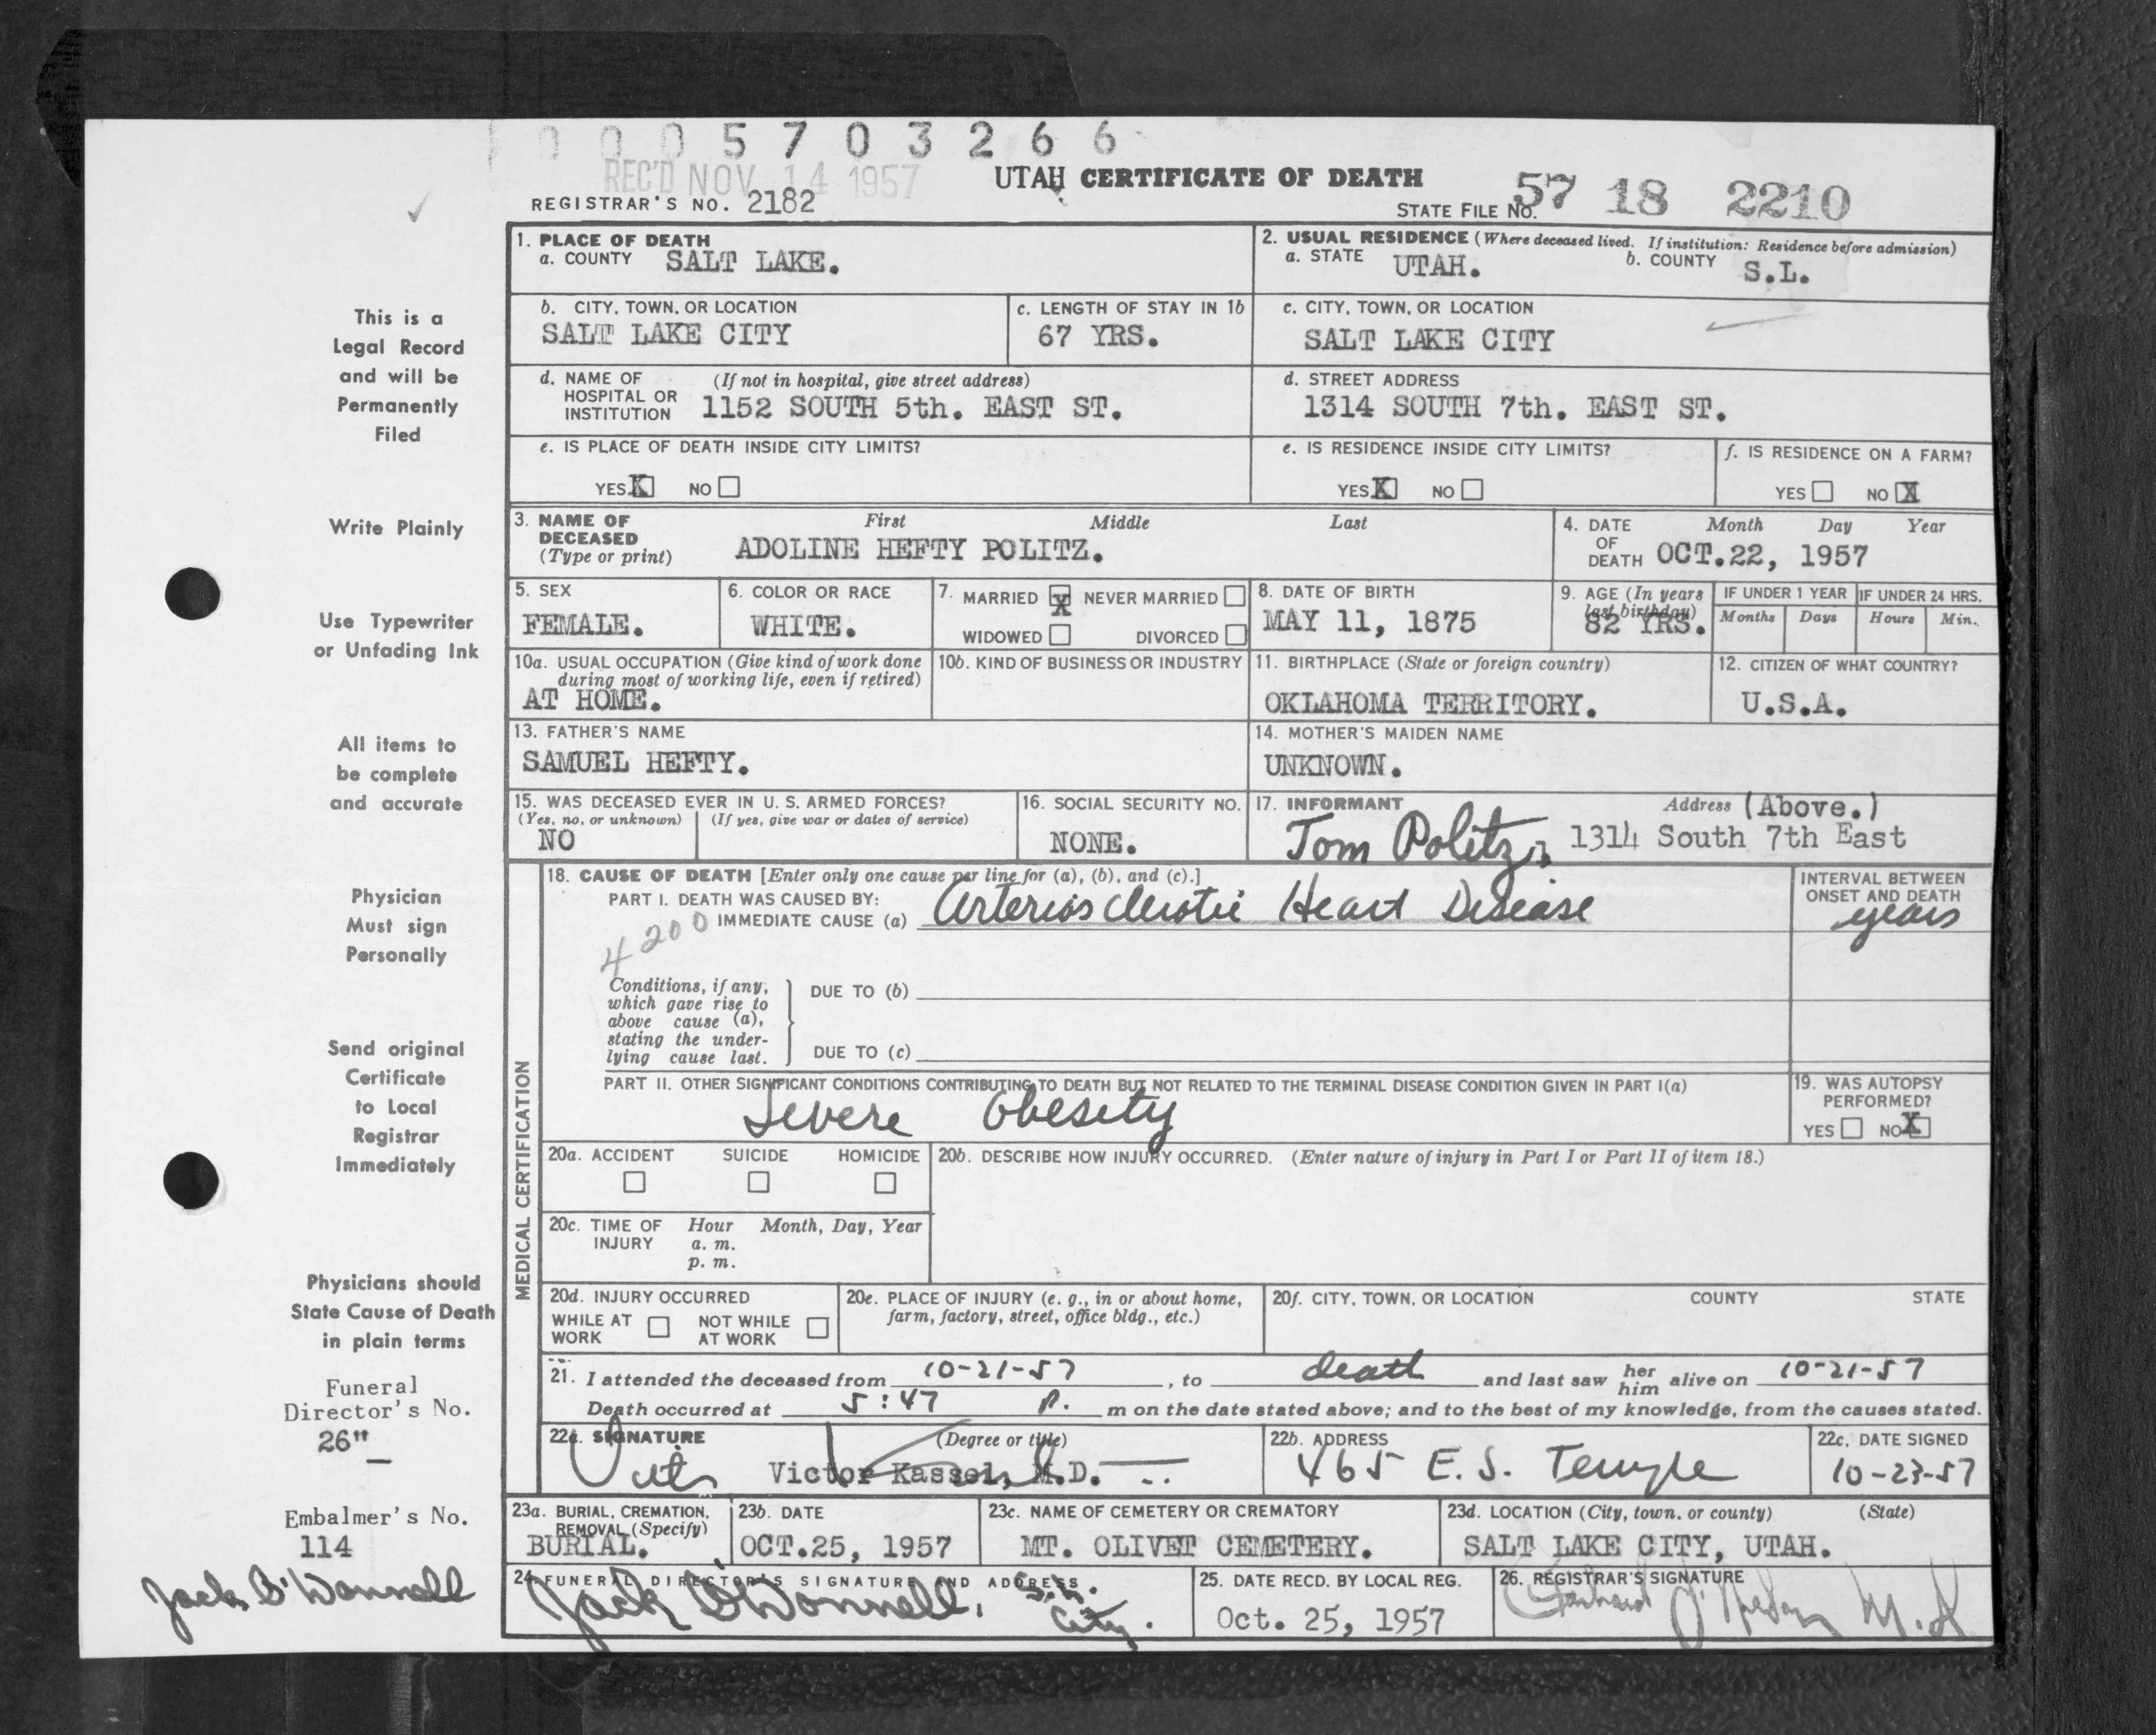 0 0 0 5 7 0 3 2 6 6
REC'D NOV 14 1957
UTAH CERTIFICATE OF DEATH
REGISTRAR'S NO. 2182
STATE FILE NO. 57 18 2210
1. PLACE OF DEATH
a. COUNTY SALT LAKE.
2. USUAL RESIDENCE (Where deceased lived. If institution: Residence before admission)
a. STATE UTAH. b. COUNTY S.L.
b. CITY, TOWN, OR LOCATION
SALT LAKE CITY
c. LENGTH OF STAY IN 1b
67 YRS.
c. CITY, TOWN, OR LOCATION
SALT LAKE CITY
d. NAME OF HOSPITAL OR INSTITUTION (If not in hospital, give street address)
1152 SOUTH 5th. EAST ST.
d. STREET ADDRESS
1314 SOUTH 7th. EAST ST.
e. IS PLACE OF DEATH INSIDE CITY LIMITS?
YES X NO
e. IS RESIDENCE INSIDE CITY LIMITS?
YES X NO
f. IS RESIDENCE ON A FARM?
YES NO X
3. NAME OF DECEASED (Type or print)
First Middle Last
ADOLINE HEFTY POLITZ.
4. DATE OF DEATH Month Day Year
OCT.22, 1957
5. SEX
FEMALE.
6. COLOR OR RACE
WHITE.
7. MARRIED X NEVER MARRIED
WIDOWED DIVORCED
8. DATE OF BIRTH
MAY 11, 1875
9. AGE (In years last birthday)
82 YRS.
IF UNDER 1 YEAR
Months Days
IF UNDER 24 HRS.
Hours Min.
10a. USUAL OCCUPATION (Give kind of work done during most of working life, even if retired)
AT HOME.
10b. KIND OF BUSINESS OR INDUSTRY
11. BIRTHPLACE (State or foreign country)
OKLAHOMA TERRITORY.
12. CITIZEN OF WHAT COUNTRY?
U.S.A.
13. FATHER'S NAME
SAMUEL HEFTY.
14. MOTHER'S MAIDEN NAME
UNKNOWN.
15. WAS DECEASED EVER IN U. S. ARMED FORCES?
(Yes, no, or unknown) (If yes, give war or dates of service)
NO
16. SOCIAL SECURITY NO.
NONE.
17. INFORMANT Address (Above.)
Tom Politz, 1314 South 7th East
MEDICAL CERTIFICATION
18. CAUSE OF DEATH [Enter only one cause per line for (a), (b), and (c).]
PART I. DEATH WAS CAUSED BY:
IMMEDIATE CAUSE (a) Arteriosclerotic Heart Disease
4200
INTERVAL BETWEEN ONSET AND DEATH
years
Conditions, if any, which gave rise to above cause (a), stating the underlying cause last.
DUE TO (b)
DUE TO (c)
PART II. OTHER SIGNIFICANT CONDITIONS CONTRIBUTING TO DEATH BUT NOT RELATED TO THE TERMINAL DISEASE CONDITION GIVEN IN PART I(a)
Severe Obesity
19. WAS AUTOPSY PERFORMED?
YES NO X
20a. ACCIDENT SUICIDE HOMICIDE
20b. DESCRIBE HOW INJURY OCCURRED. (Enter nature of injury in Part I or Part II of item 18.)
20c. TIME OF INJURY Hour Month, Day, Year
a. m.
p. m.
20d. INJURY OCCURRED
WHILE AT WORK NOT WHILE AT WORK
20e. PLACE OF INJURY (e. g., in or about home, farm, factory, street, office bldg., etc.)
20f. CITY, TOWN, OR LOCATION COUNTY STATE
21. I attended the deceased from 10-21-57, to death and last saw her him alive on 10-21-57
Death occurred at 5:47 P. m on the date stated above; and to the best of my knowledge, from the causes stated.
22a. SIGNATURE (Degree or title)
Victor Kassel, M.D.
22b. ADDRESS
465 E. S. Temple
22c. DATE SIGNED
10-23-57
23a. BURIAL, CREMATION, REMOVAL (Specify)
BURIAL.
23b. DATE
OCT.25, 1957
23c. NAME OF CEMETERY OR CREMATORY
MT. OLIVET CEMETERY.
23d. LOCATION (City, town, or county) (State)
SALT LAKE CITY, UTAH.
24. FUNERAL DIRECTOR'S SIGNATURE AND ADDRESS.
Jack O'Donnell. S.L. City.
25. DATE RECD. BY LOCAL REG.
Oct. 25, 1957
26. REGISTRAR'S SIGNATURE
This is a
Legal Record
and will be
Permanently
Filed
Write Plainly
Use Typewriter
or Unfading Ink
All items to
be complete
and accurate
Physician
Must sign
Personally
Send original
Certificate
to Local
Registrar
Immediately
Physicians should
State Cause of Death
in plain terms
Funeral
Director's No.
26"
Embalmer's No.
114
Jack O'Donnell